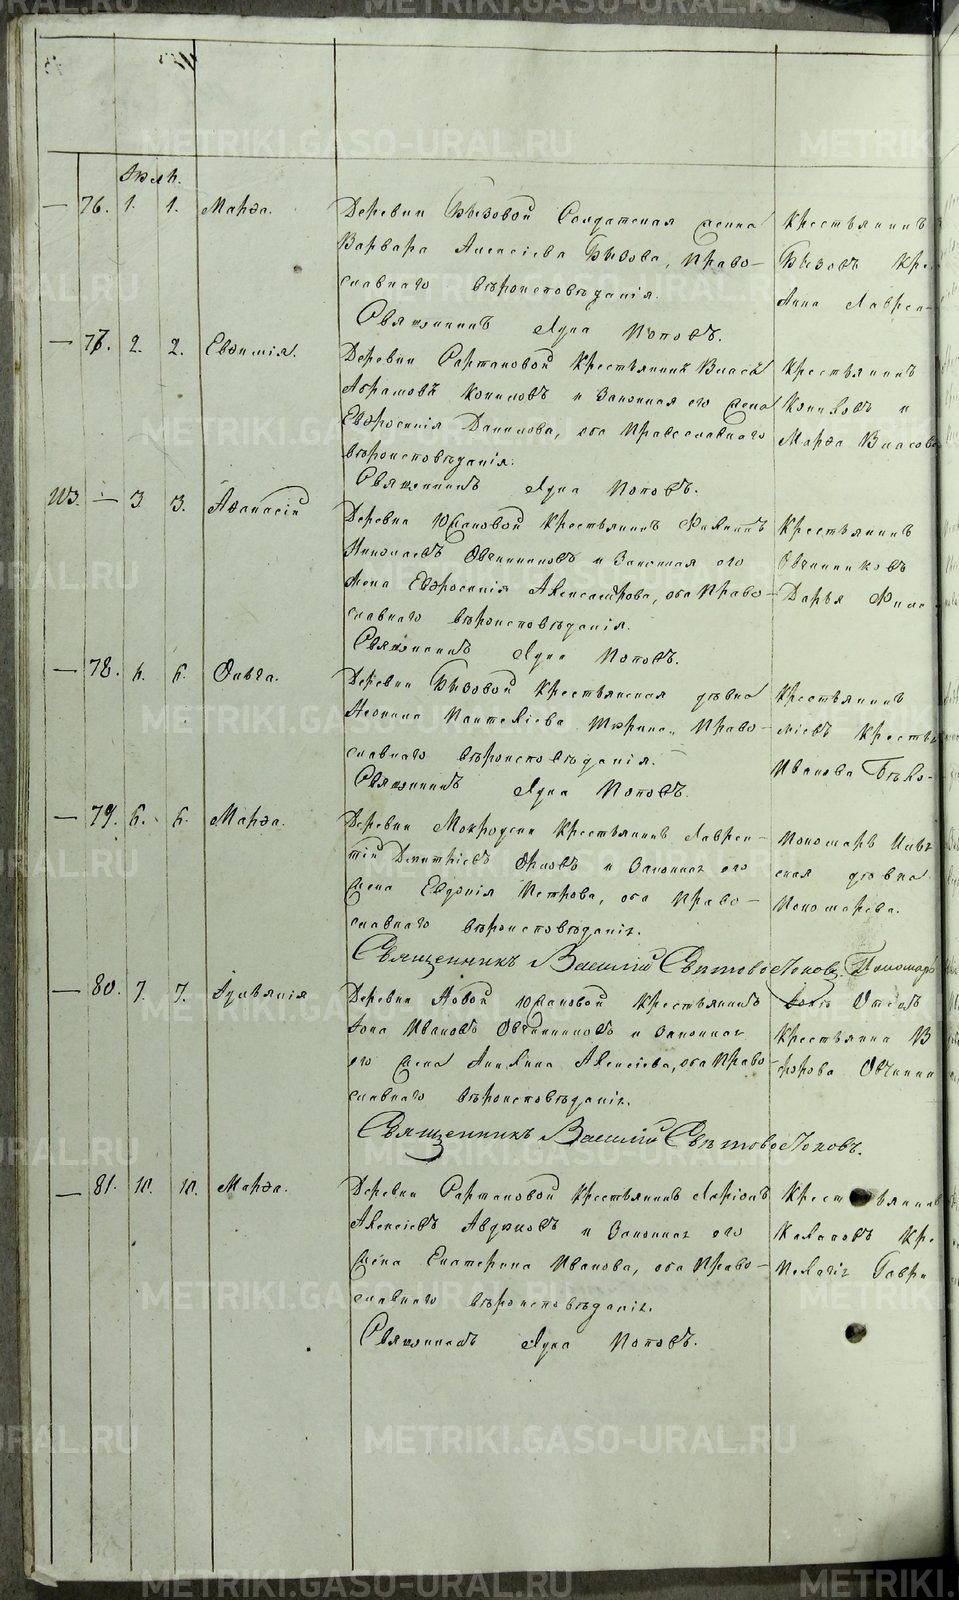 Июль.
— 76. 1. 1. Марѳа.
Деревни Бызовой Солдатская жена
Варвара Алексіева Бызова, право-
славнаго вѣроисповѣданія.
Священникъ Лука Поповъ.
Крестьянинъ
Бызовъ Кре
Анна Лаврен-
— 77. 2. 2. Евѳимія.
Деревни Сартаковой Крестьянинъ Власъ
Абрамовъ Копыловъ и законная его жена
Евфросинія Данилова, оба православнаго
вѣроисповѣданія.
Священникъ Лука Поповъ.
Крестьянинъ
и
Марѳа Власова
113. — 3. 3. Аѳанасій
Деревни Крестьянинъ
Николаевъ Овчинниковъ и законная его
жена Евфросинія Александрова, оба право-
славнаго вѣроисповѣданія.
Священникъ Лука Поповъ.
Крестьянинъ
Овчинниковъ
Дарья Фила
— 78. 6. 6. Ольга.
Деревни Бызовой Крестьянская дѣвка
Пантеліева право-
славнаго вѣроисповѣданія.
Священникъ Лука Поповъ.
Крестьянинъ
Крестья
Иванова
— 79. 6. 6. Марѳа.
Деревни Крестьянинъ Лаврен-
тій Дмитріевъ и законная его
жена Евдокія Петрова, оба право-
славнаго вѣроисповѣданія.
Священникъ Василій Свѣтовостоковъ, Пономарь
Пономарь
ская дѣвка
Пономарева.
— 80. 7. 7. Іуліанія
Деревни Новой Крестьянинъ
Иванов Овчинниковъ и законная
его жена Акилина Алексіева, оба право-
славнаго вѣроисповѣданія.
Священникъ Василій Свѣтовостоковъ.
Крестьянина
Овчинн
— 81. 10. 10. Марѳа.
Деревни Сартаковой Крестьянинъ Ларіонъ
Алексіевъ и законная его
жена Екатерина Иванова, оба право-
славнаго вѣроисповѣданія.
Священникъ Лука Поповъ.
Крестьянинъ
Кре
Пелагія Гаври
METRIKI.GASO-URAL.RU